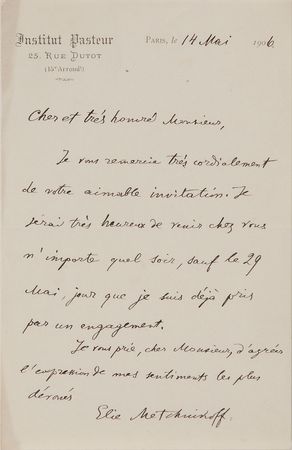 Institut Pasteur
25, Rue Dutot
(15e Arrondt)
Paris, le 14 Mai 1906
Cher et très honoré Monsieur,
Je vous remercie très cordialement
de votre aimable invitation. Je
serai très heureux de venir chez vous
n'importe quel soir, sauf le 29
Mai, jour que je suis déjà pris
par un engagement.
Je vous prie, cher Monsieur, d'agréer
l'expression de mes sentiments les plus
dévoués
Elie Metchnikoff.